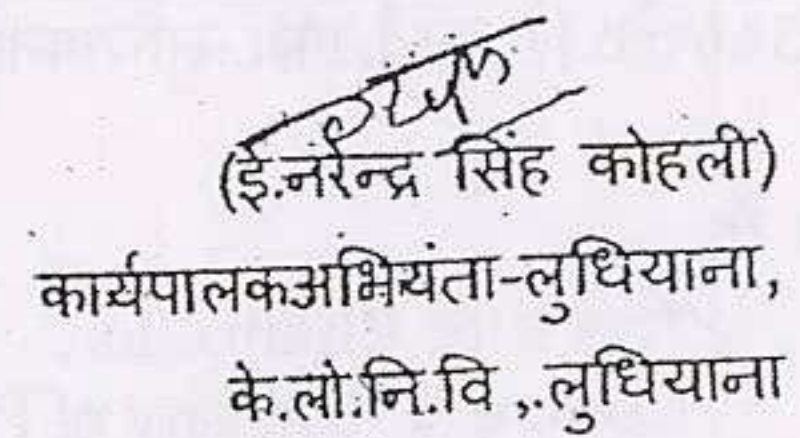 (ई.नरेन्द्र सिंह कोहली)
कार्यपालकअभियंता-लुधियाना,
के.लो.नि.वि ,.लुधियाना